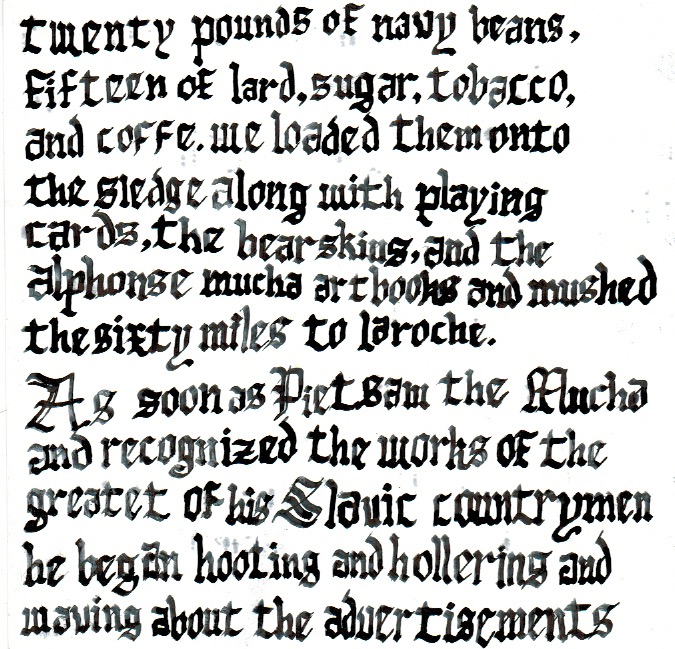 twenty pounds of navy beans,
fifteen of lard, sugar, tobacco,
and coffe. we loaded them onto
the sledge along with playing
cards, the bearskins, and the
alphonse mucha artbooks and mushed
the sixty miles to laroche.
As soon as Piet saw the Mucha
and recognized the works of the
greatet of his Slavic countrymen
he began hooting and hollering and
waving about the advertisements